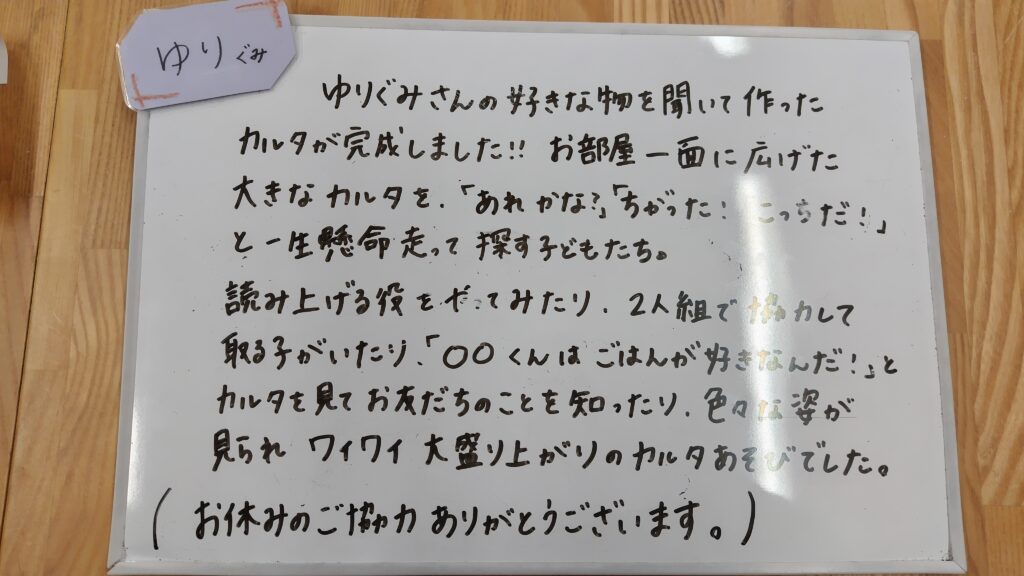 ゆりぐみ
ゆりぐみさんの好きな物を聞いて作った
カルタが完成しました!! お部屋一面に広げた
大きなカルタを、「あれかな?」「ちがった!こっちだ!」
と一生懸命走って探す子どもたち。
読み上げる役をやってみたり、2人組で協力して
取る子がいたり、「〇〇くんはごはんが好きなんだ!」と
カルタを見てお友だちのことを知ったり、色々な姿が
見られ ワイワイ 大盛り上がりのカルタあそびでした。
(お休みのご協力ありがとうございます。)